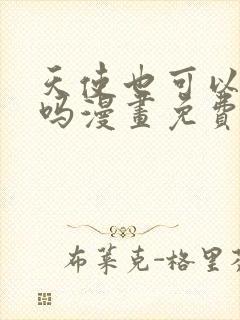 天使也可以
吗漫畫免費
布莱克-格里芬